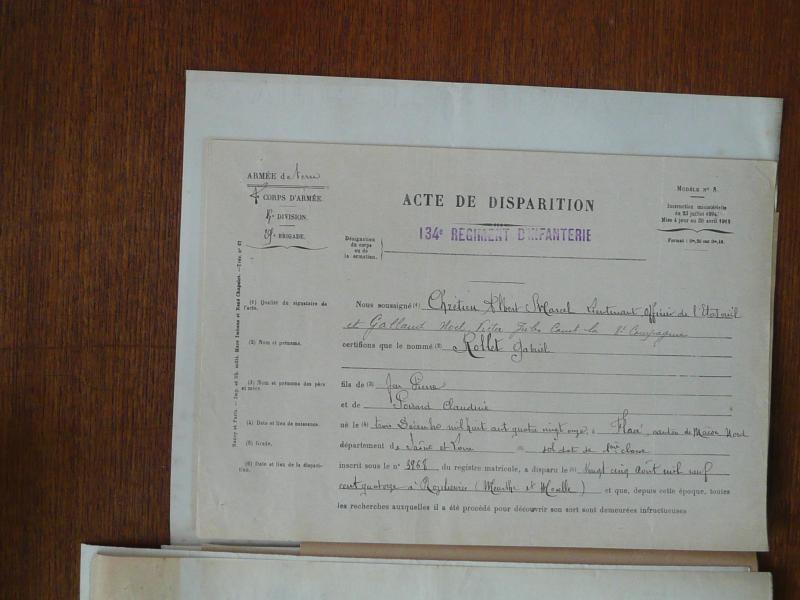 ARMÉE de terre
CORPS D'ARMÉE
DIVISION
BRIGADE.
ACTE DE DISPARITION
134e REGIMENT D'INFANTERIE
Désignation
du corps
ou de
la formation.
MODÈLE No 8.
Instruction ministérielle
du 23 juillet 1894
Mise à jour au 20 avril
Format :
(1) Qualité du signataire de
l'acte.
(2) Nom et prénoms.
(3) Nom et prénoms des père
et mère.
(4) Date et lieu de naissance.
(5) Grade.
(6) Date et lieu de la dispari-
tion.
Nous soussigné (1) Chrétien Albert Marcel Lieutenant officier de l'Etat civil
et Galland Noel, Victor Jules Comt la Compagnie
certifions que le nommé (2) Rollet Gabriel
fils de (3) Jean Pierre
et de Poissard Claudine
né le (4) trois Décembre mil huit cent quatre vingt onze à Flacé, canton de Macon Nord
département de Saône et Loire (5) soldat de 2ème classe
inscrit sous le no 3968 du registre matricule, a disparu le (6) vingt cinq août mil neuf
cent quatorze à Rozelieures (Meurthe et Moselle) et que, depuis cette époque, toutes
les recherches auxquelles il a été procédé pour découvrir son sort sont demeurées infructueuses